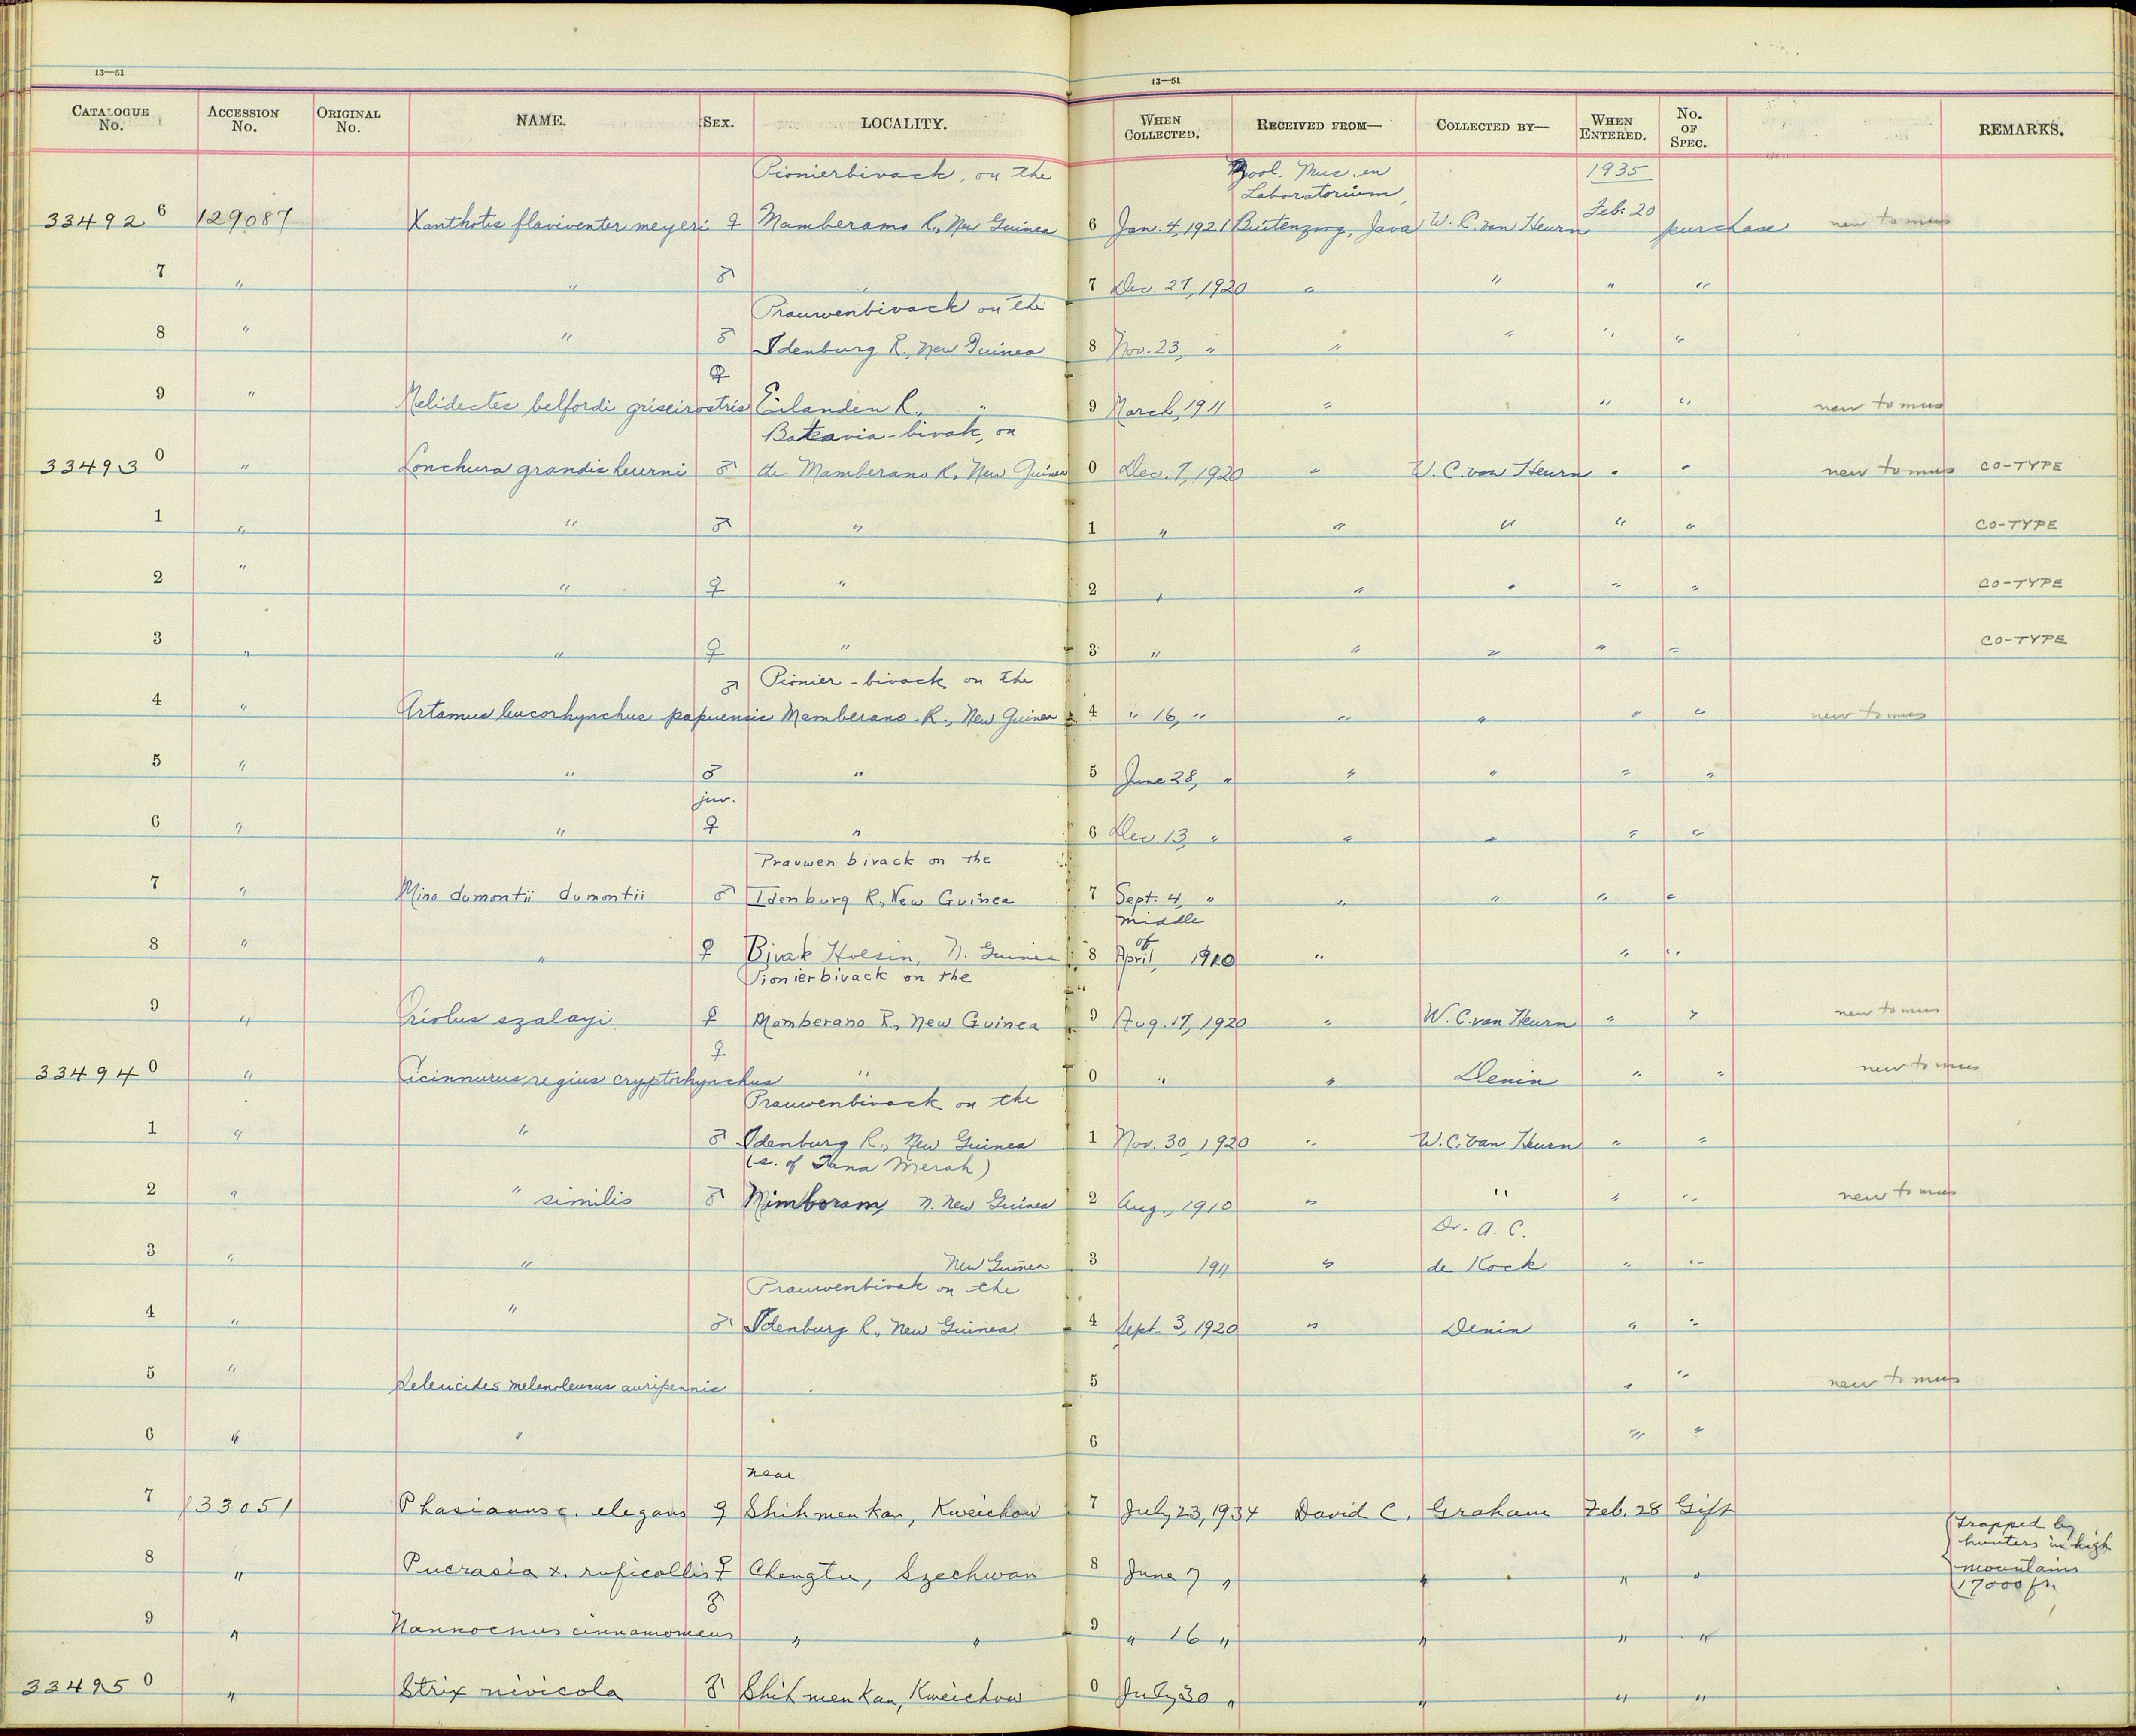 13—51
13—51
CATALOGUE No. ACCESSION No. ORIGINAL No. NAME. SEX. LOCALITY. WHEN COLLECTED. RECEIVED FROM— COLLECTED BY— WHEN ENTERED. No. OF SPEC. REMARKS.
Pionierbivack, on the Zool. Mus. en 1935
Laboratorium,
334926 129087 Xanthotis flaviventer meyeri ♀ Mamberamo R., New Guinea 6 Jan. 4, 1921 Buitenzorg, Java W. C. van Heurn Feb. 20 purchase new to mus
7 " " ♂ " 7 Dec. 27, 1920 " " " "
Prauwenbivack on the
8 " " ♂ Idenburg R., New Guinea 8 Nov. 23, " " " " "
9 " Melidectes belfordi griseirostris ♀ Eilanden R., " 9 March, 1911 " " " new to mus
Batavia-bivak, on
334930 " Lonchura grandis heurni ♂ the Mamberano R., New Guinea 0 Dec. 7, 1920 " W. C. van Heurn " " new to mus CO-TYPE
1 " " ♂ " 1 " " " " " CO-TYPE
2 " " ♀ " 2 " " " " " CO-TYPE
3 " " ♀ " 3 " " " " " CO-TYPE
Pionier-bivack on the
4 " Artamus leucorhynchus papuensis ♂ Mamberano R., New Guinea 4 " 16, " " " " " new to mus
5 " " ♂ " 5 June 28, " " " " "
juv.
6 " " ♀ " 6 Dec. 13, " " " " "
Prauwen bivack on the
7 " Mino dumontii dumontii ♂ Idenburg R., New Guinea 7 Sept. 4, " " " " "
middle
of
8 " " ♀ Bivak Holsin, N. Guinea 8 April, 1910 " " "
Pionierbivack on the
9 " Oriolus szalayi ♀ Mamberano R., New Guinea 9 Aug. 17, 1920 " W. C. van Heurn " " new to mus
334940 " Cicinnurus regius cryptorhynchus ♀ " 0 " " Denin " " new to mus
Prauwenbivack on the
1 " " ♂ Idenburg R., New Guinea 1 Nov. 30, 1920 " W. C. van Heurn " "
(s. of Tana Merah)
2 " " similis ♂ Nimboram, N. New Guinea 2 Aug., 1910 " " " " new to mus
Dr. A. C.
3 " " New Guinea 3 1911 " de Kock " "
Prauwenbivak on the
4 " " ♂ Idenburg R., New Guinea 4 Sept. 3, 1920 " Denin " "
5 " Seleucides melanoleucus auripennis 5 " " new to mus
6 " " 6 " "
near
7 133051 Phasianus c. elegans ♀ Shih men kan, Kweichow 7 July 23, 1934 David C. Graham Feb. 28 Gift
8 " Pucrasia x. ruficollis ♀ Chengtu, Szechwan 8 June 7 " " " " Trapped by
hunters in high
mountains
17000 ft.
9 " Nannocnus cinnamomeus ♂ " " 9 " 16 " " " "
334950 " Strix nivicola ♂ Shih men kan, Kweichow 0 July 30 " " " "